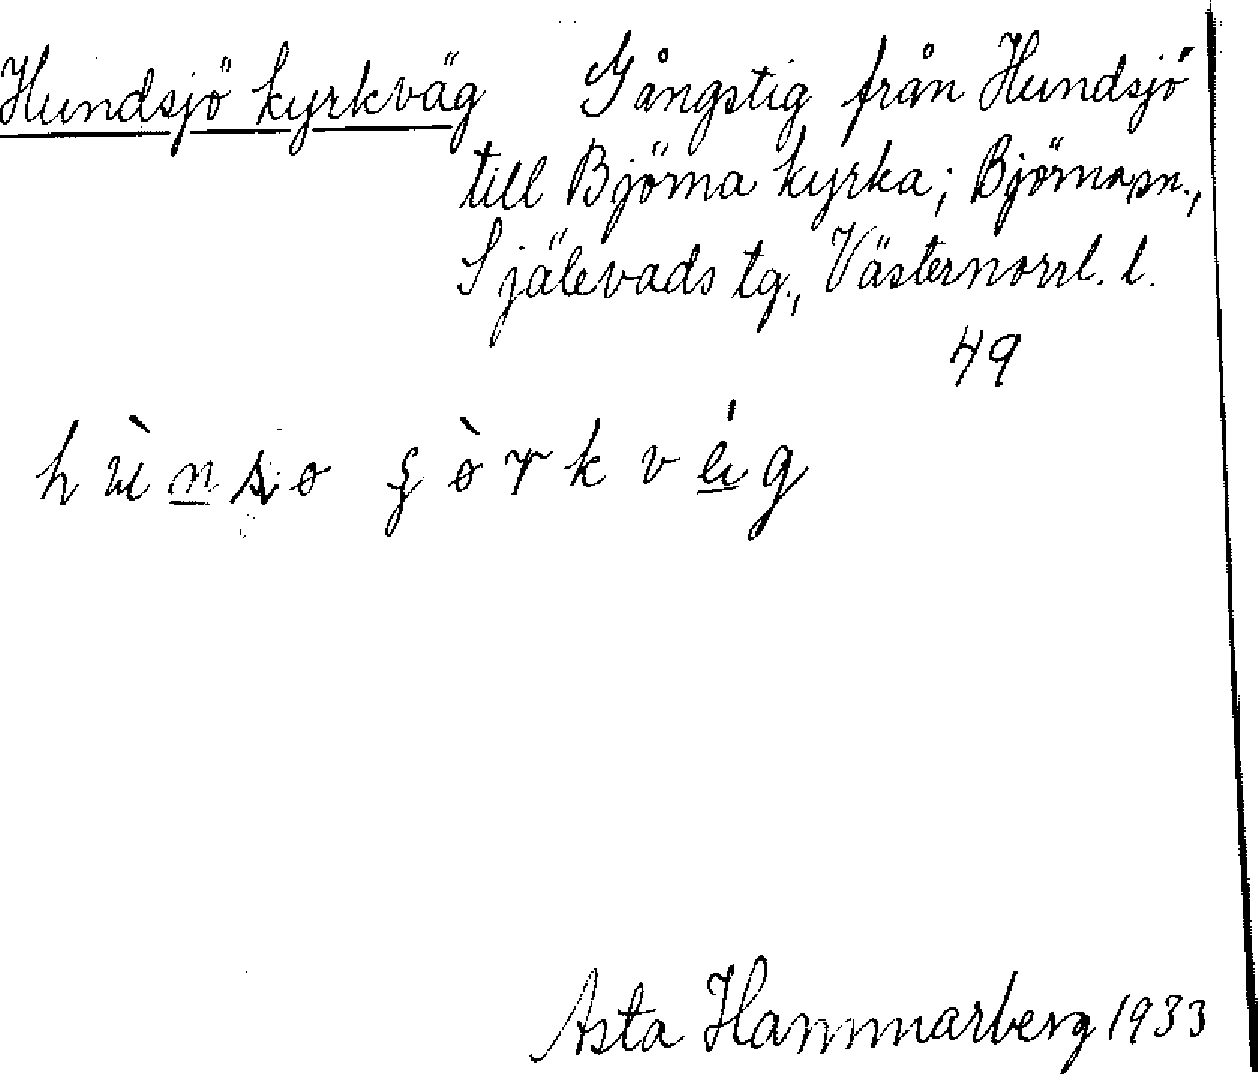 Hundsjö kyrkväg Gångstig från Hundsjö
till Björna kyrka; Björna sn.,
Själevads tg., Västernorrl. l.
49
Asta Hammarberg 1933